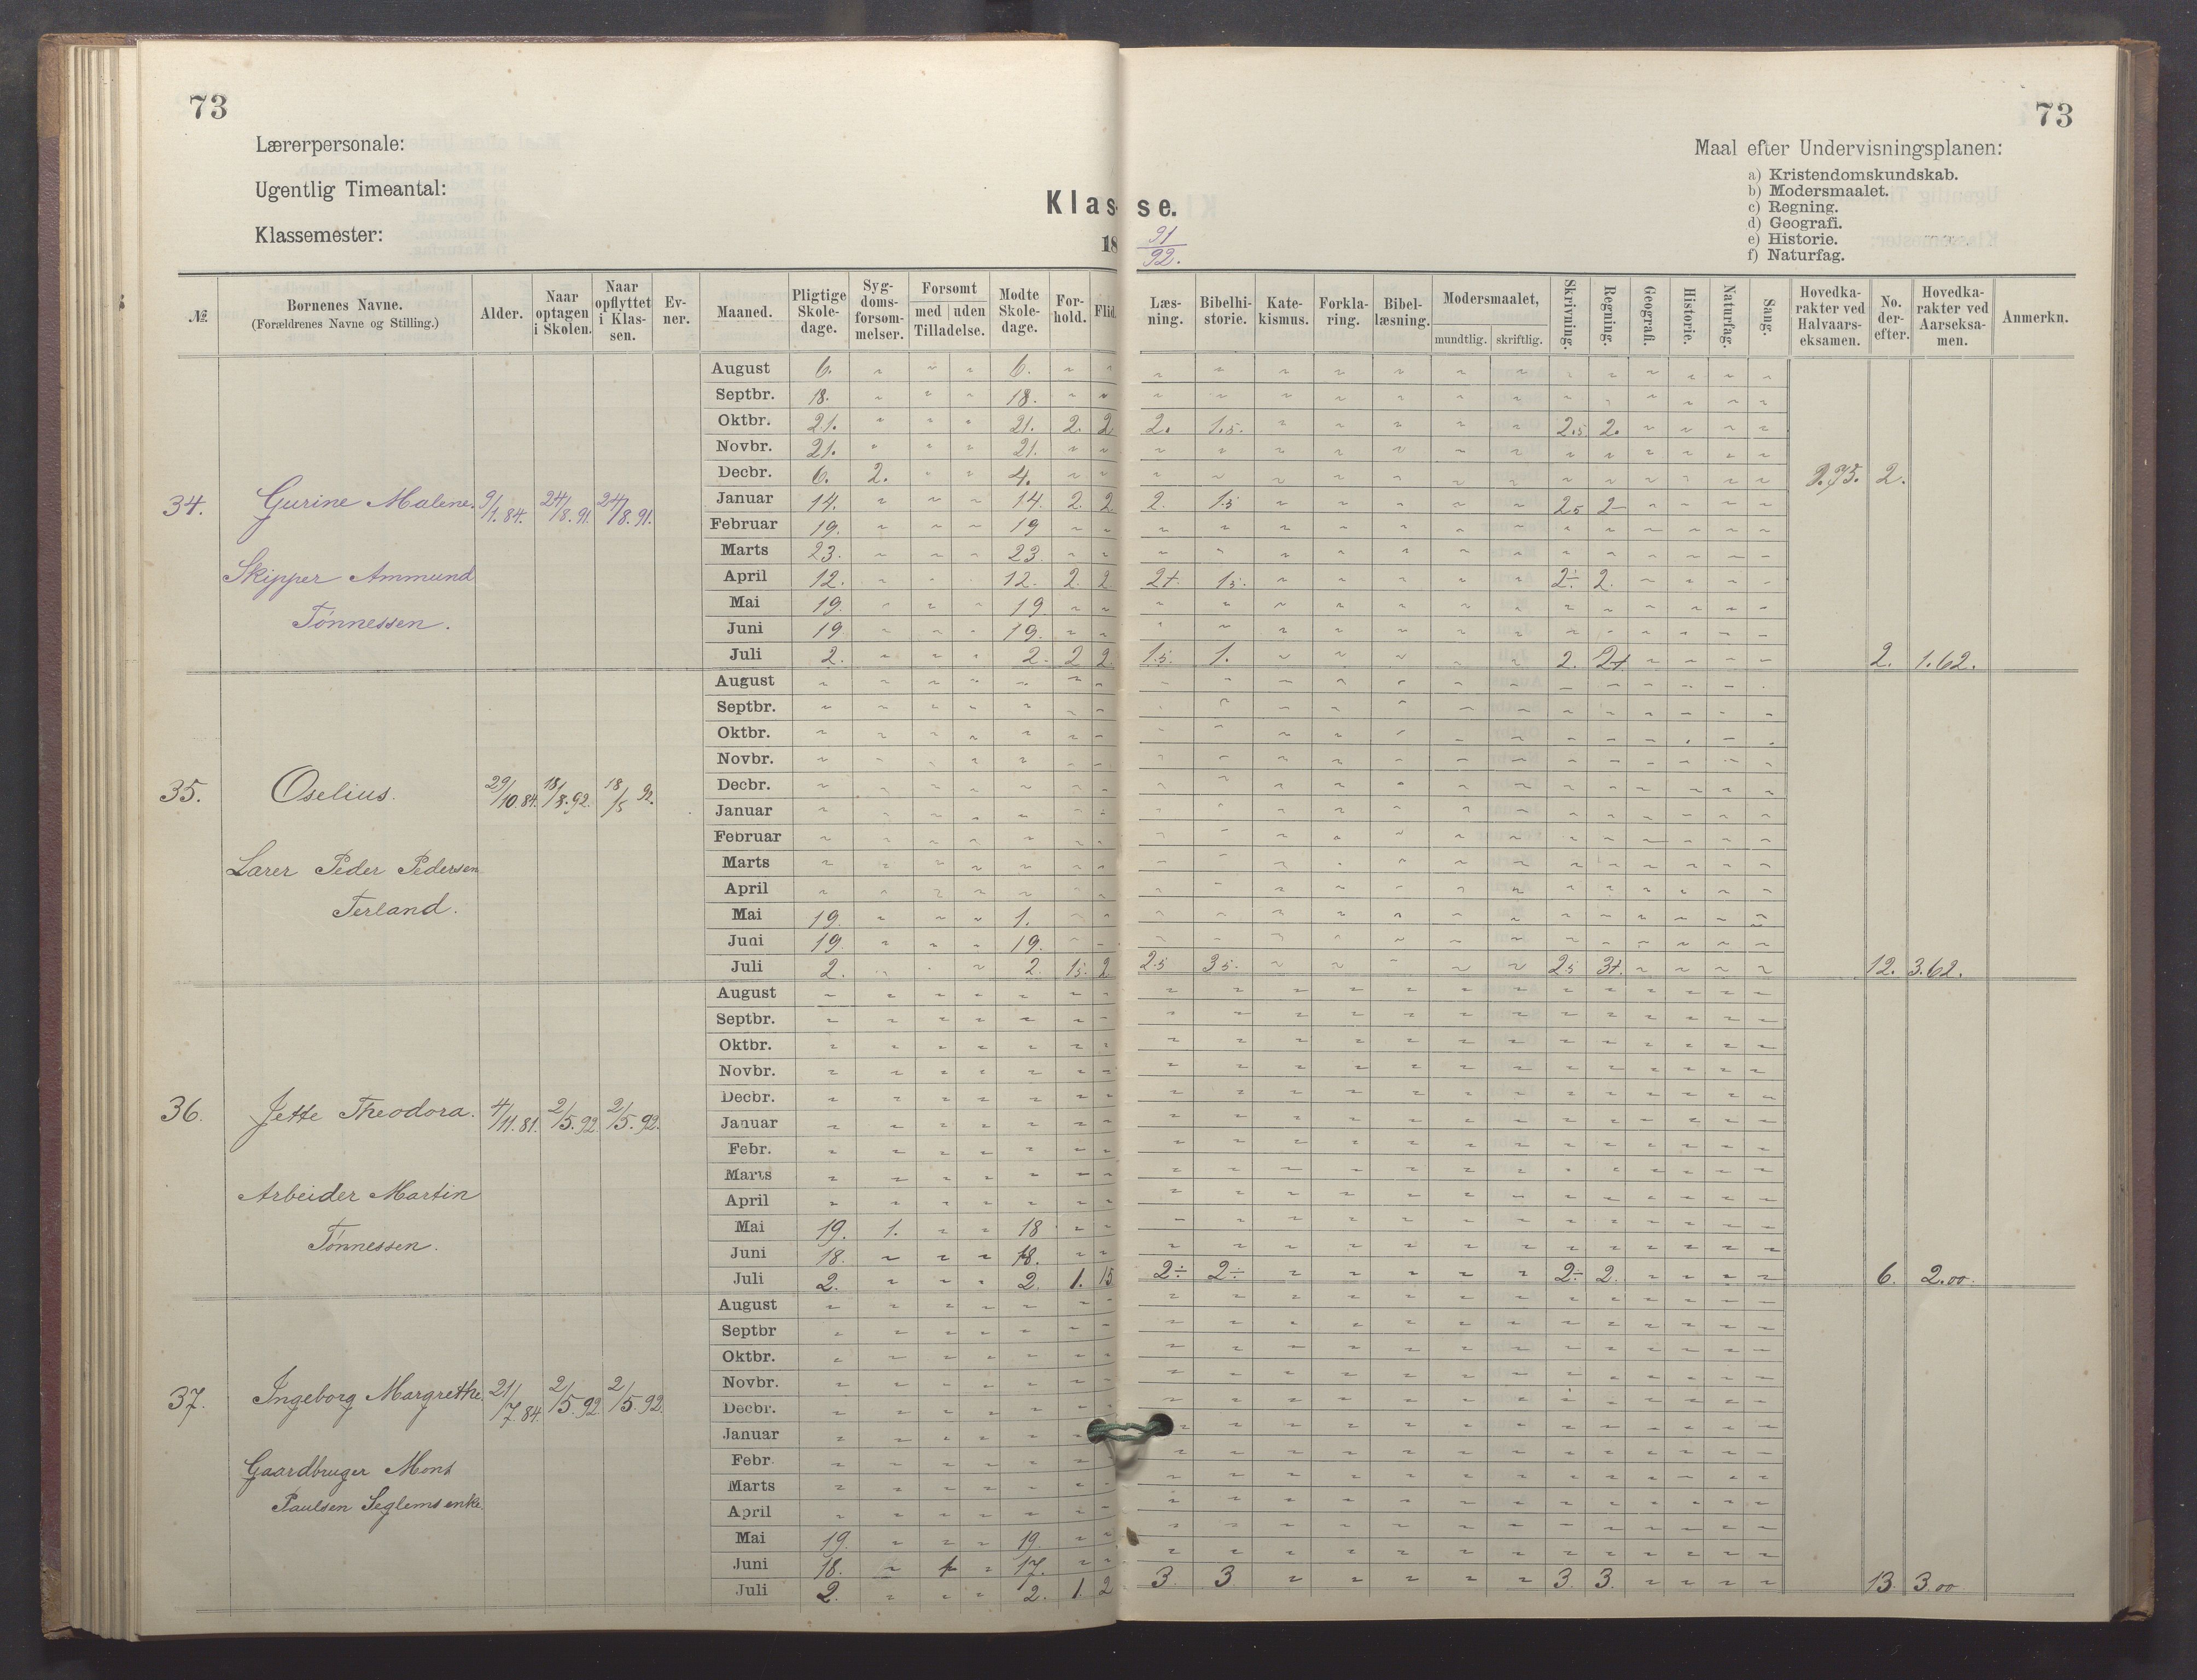 73
73
Lærerpersonale:
Ugentlig Timeantal:
Klassemester:
Klas- se.
18 91/92.
Maal efter Undervisningsplanen:
a) Kristendomskundskab.
b) Modersmaalet.
c) Regning.
d) Geografi.
e) Historie.
f) Naturfag.
№. Børnenes Navne. (Forældrenes Navne og Stilling.) Alder. Naar optagen i Skolen. Naar opflyttet i Klassen. Evner. Maaned. Pligtige Skoledage. Sygdomsforsømmelser. Forsømt med uden Tilladelse. Mødte Skoledage. Forhold. Flid. Læsning. Bibelhistorie. Katekismus. Forklaring. Bibellæsning. Modersmaalet, mundtlig. skriftlig. Skrivning. Regning. Geografi. Historie. Naturfag. Sang. Hovedkarakter ved Halvaarseksamen. No. derefter. Hovedkarakter ved Aarseksamen. Anmerkn.
August 6. 6.
Septbr. 18. 18.
Oktbr. 21. 21. 2. 2 2. 1.5. 2.5 2.
Novbr. 21. 21.
Decbr. 6. 2. 4. 2.
34. Gurine Malene. 9/1.84. 24/8.91. 24/8.91. Januar 14. 14. 2. 2. 2. 1.5 2.5 2-
Februar 19. 19
Marts 23. 23.
Skipper Ammund April 12. 12. 2. 2. 2+. 1.5. 2÷ 2.
Tønnessen. Mai 19. 19
Juni 19 19.
Juli 2. 2. 2 2. 1.5. 1. 2. 2+ 2. 1.62.
August
Septbr.
Oktbr.
Novbr.
35. Oselius. 29/10.84. 18/8.92. 18/5 92. Decbr.
Januar
Februar
Larer Peder Pedersen Marts
Terland. April
Mai 19. 1.
Juni 19. 19.
Juli 2. 2. 1.5. 2 2.5 3.5. 2.5 3+. 12. 3.62.
August
Septbr.
Oktbr.
Novbr.
36. Jette Theodora. 4/11.81. 2/5.92. 2/5.92. Decbr.
Januar
Febr.
Marts
Arbeider Martin April
Tønnessen. Mai 19. 1. 18
Juni 18. 18.
Juli 2. 2. 1. 1.5 2÷ 2÷ 2÷ 2. 6. 2.00.
August
Septbr
Oktbr.
37. Ingeborg Margrethe. 21/7.84. 2/5.92. 2/5.92. Novbr.
Decbr.
Januar
Gaardbruger Mons Febr.
Paulsen Seglems enke. Marts
April
Mai 19. 19.
Juni 18. 17.
Juli 2. 2. 1. 2 3. 3 3. 3. 13. 3.00